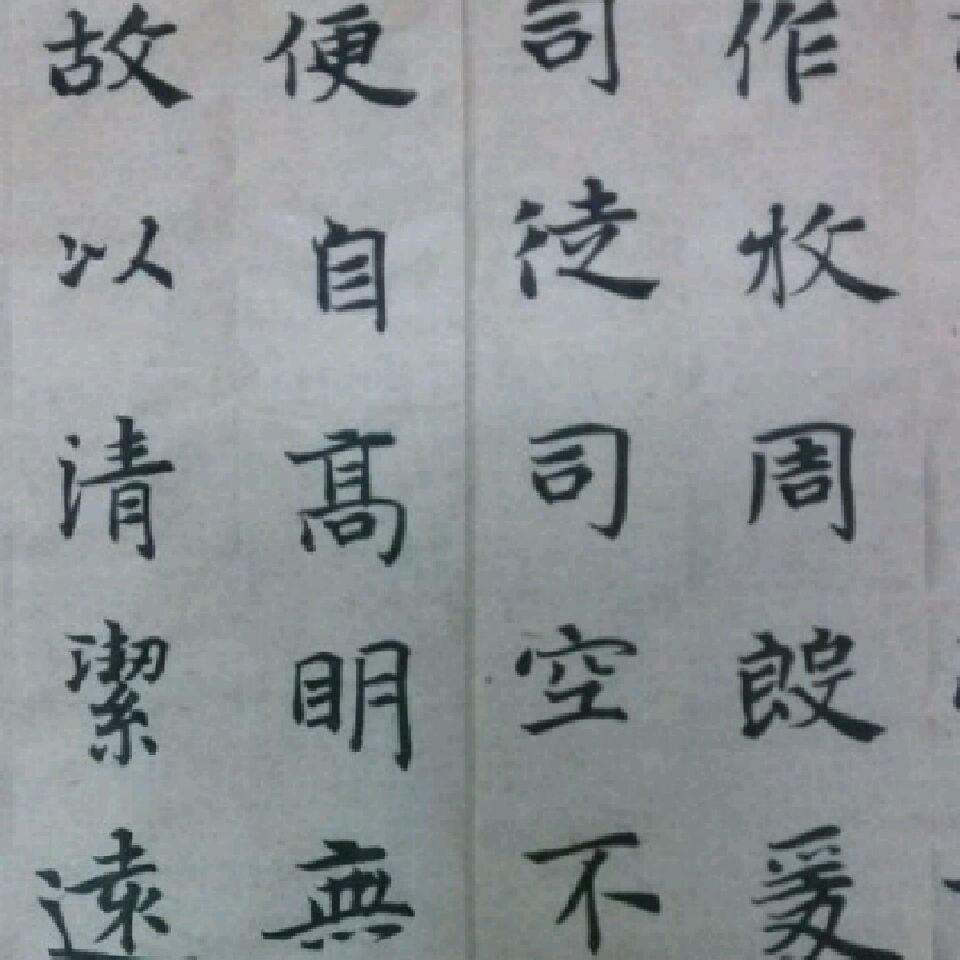 作牧周殷爰
司徒司空不
便自髙眀無
故以清潔遠